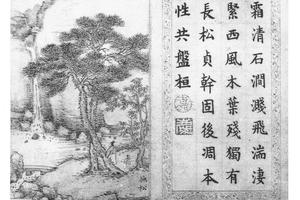 霜清石澗濺飛湍淒
緊西風木葉殘獨有
長松貞幹固後凋本
性共盤桓
撫松